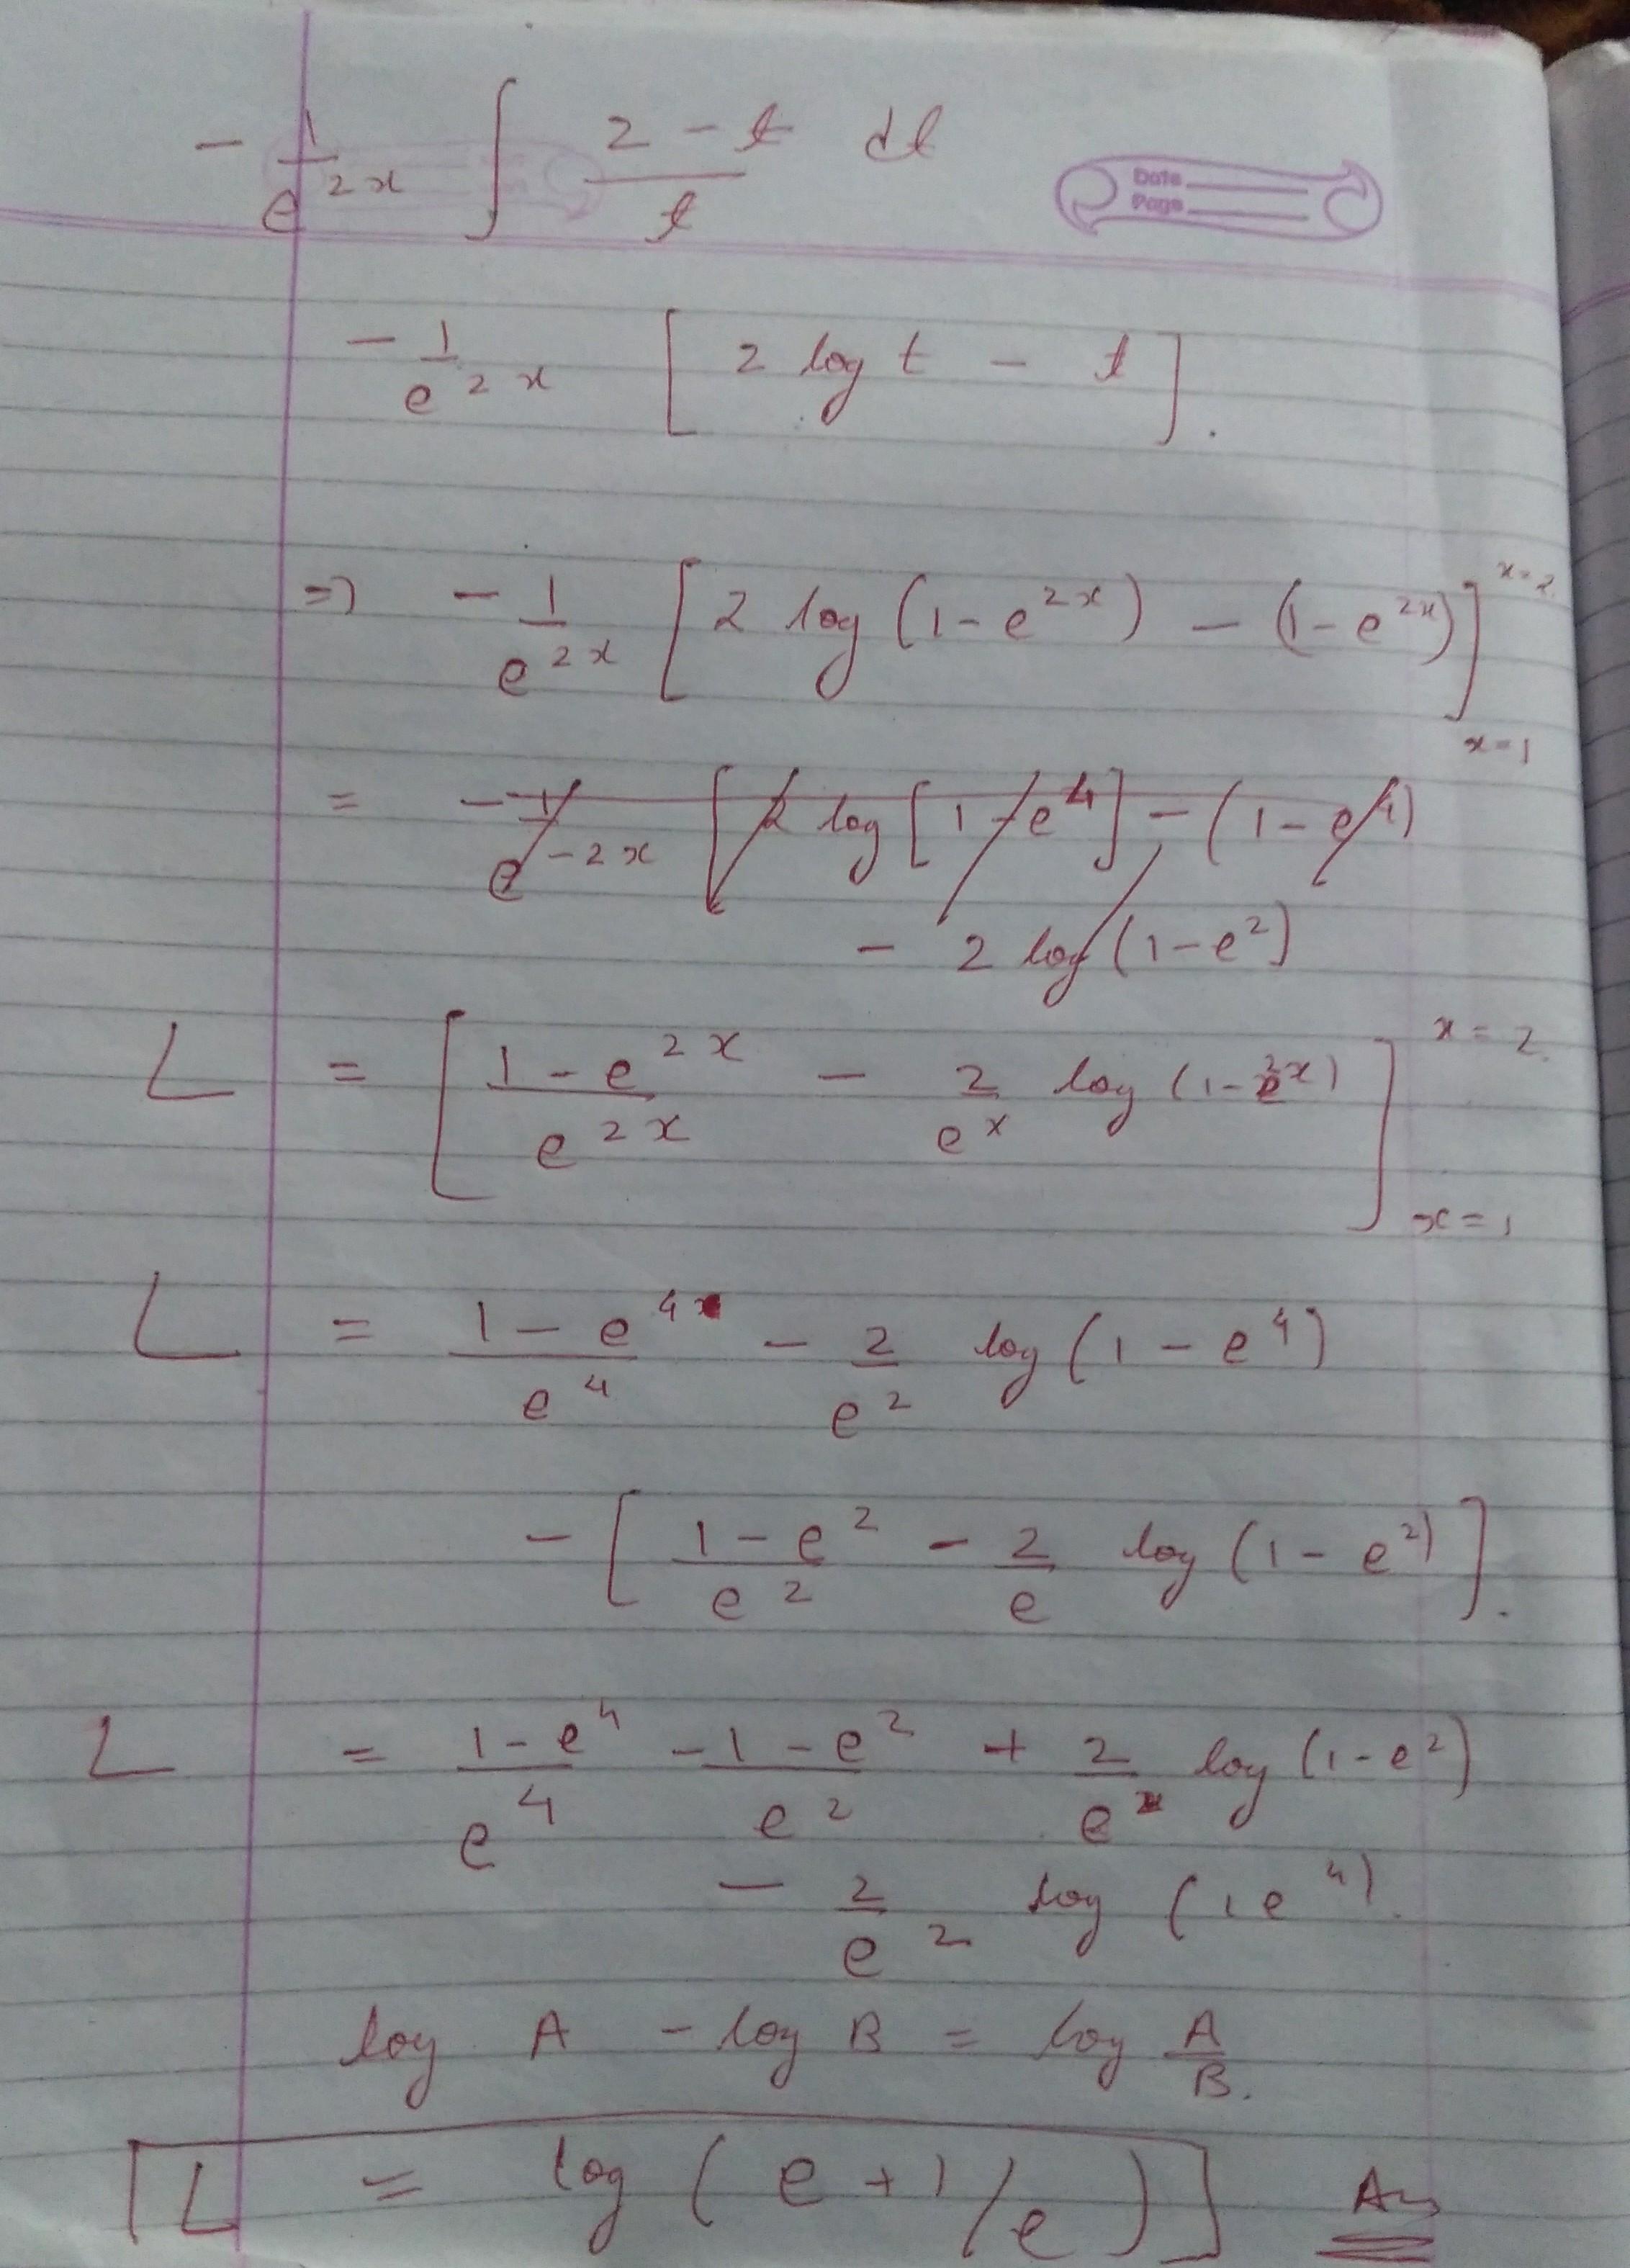 - 1/e^2x ∫ (2 - t)/t dt
Date
Page
- 1/e^2x [2 log t - t].
=> - 1/e^2x [2 log (1 - e^2x) - (1 - e^2x)] x=2 x=1
= - 1/e^-2x [2 log [1 - e^4] - (1 - e^4)
- 2 log (1 - e^2)
L = [(1 - e^2x)/e^2x - 2/e^x log (1 - e^2x)] x=2 x=1
L = (1 - e^4)/e^4 - 2/e^2 log (1 - e^4)
- [(1 - e^2)/e^2 - 2/e log (1 - e^2)].
L = (1 - e^4)/e^4 - (1 - e^2)/e^2 + 2/e log (1 - e^2)
- 2/e^2 log (1 e^4).
log A - log B = log A/B.
L = log (e + 1/e) Ans